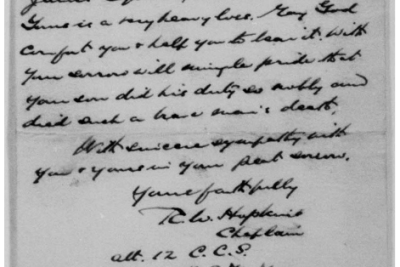 Yours is a very heavy loss. May God
comfort you & help you to bear it. With
your sorrow will mingle pride that
your son did his duty so nobly and
died such a brave man's death.
With sincere sympathy with
you & yours in your great sorrow,
Yours faithfully
R. W. Hopkins
Chaplain
att. 12 C.C.S.